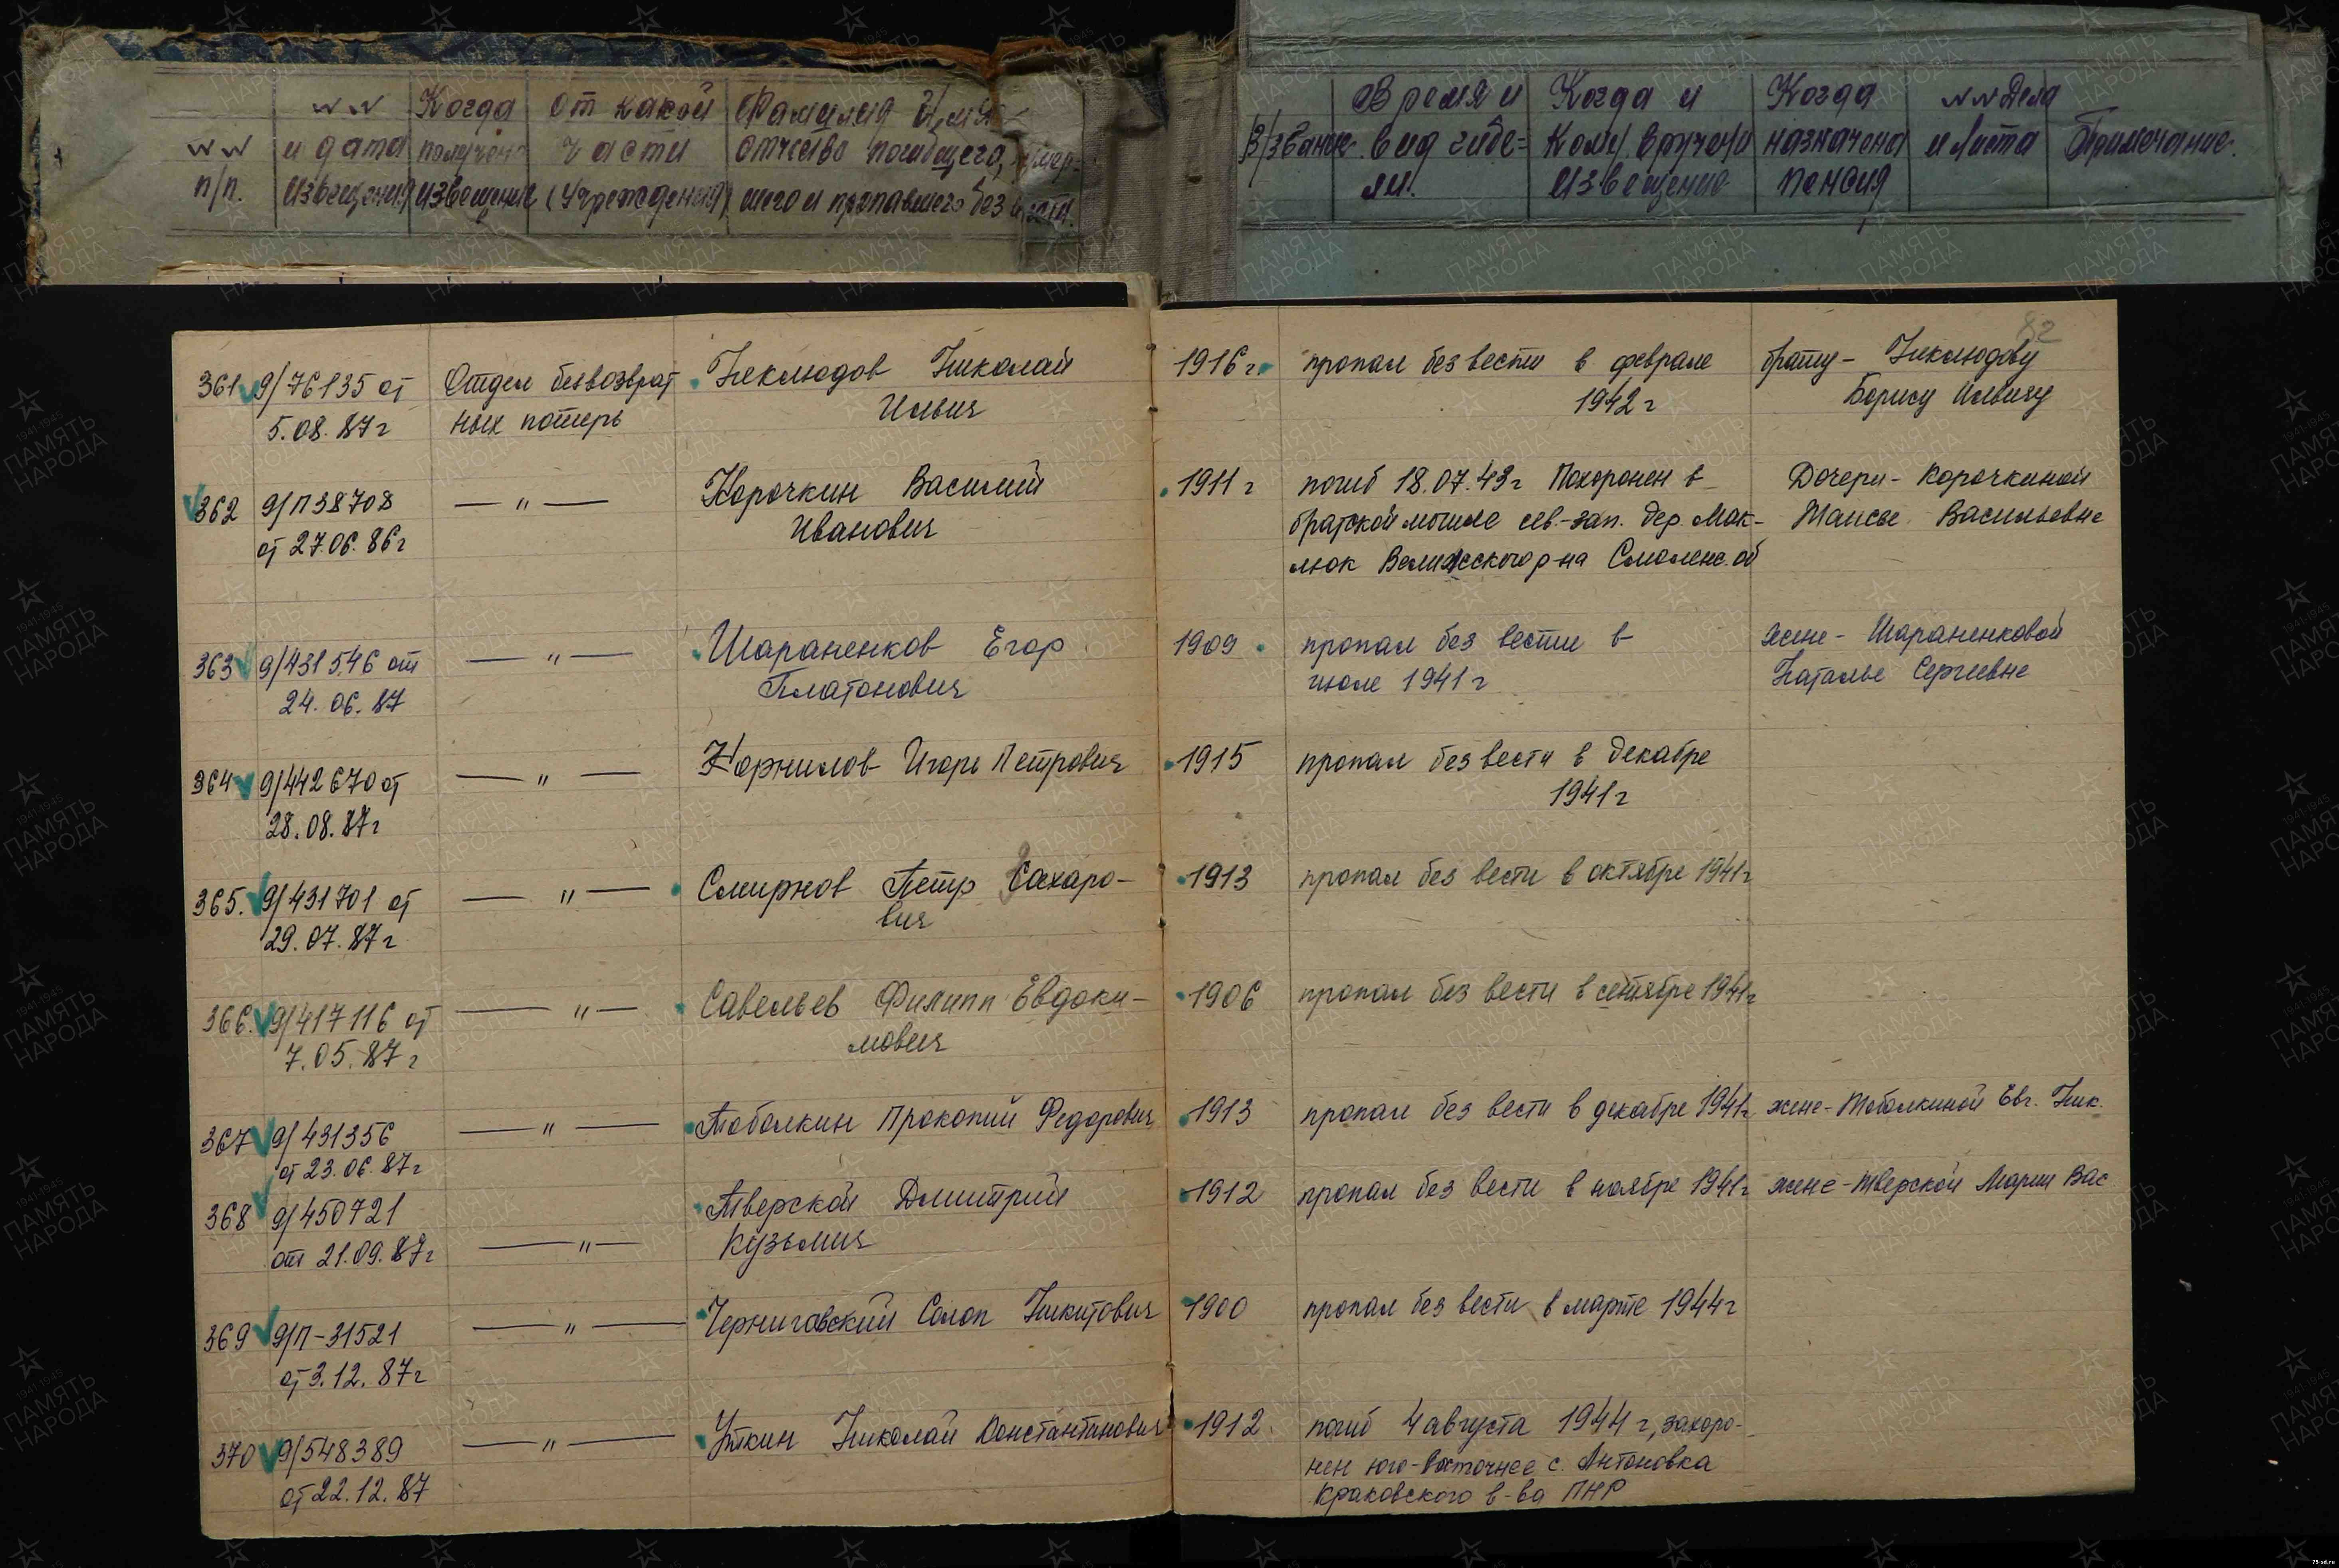 №№ п/п.
№№ и дата извещения
Когда получен извещение
От какой части (учреждения)
Фамилия Имя отчество погибшего, умершего и пропавшего без вести.
В/звание
Время и вид гибели.
Когда и кому вручено извещение
Когда назначена пенсия
№№ дела и листа
Примечание.
82
361 9/76135 от Отдел безвозврат Неклюдов Николай 1916 г. пропал без вести в феврале брату - Неклюдову
5.08.87 г ных потерь Ильич 1942 г Борису Ильичу
362 9/П38708 — " — Корочкин Василий 1911 г погиб 18.07.43 г Похоронен в Дочери - Корочкиной
от 27.06.86 г Иванович братской могиле сев.-зап. дер. Мак- Таисье Васильевне
люк Велижского р-на Смоленс. об
363 9/431546 от — " — Шараненков Егор 1909 пропал без вести в жене - Шараненковой
24.06.87 Платонович июле 1941 г Наталье Сергеевне
364 9/442670 от — " — Корнилов Игорь Петрович 1915 пропал без вести в декабре
28.08.87 г 1941 г
365. 9/431701 от — " — Смирнов Петр Сахаро- 1913 пропал без вести в октябре 1941 г
29.07.87 г вич
366. 9/417116 от — " — Савельев Филипп Евдоки- 1906 пропал без вести в сентябре 1941 г
7.05.87 г мович
367 9/431356 — " — Тоболкин Прокопий Федорович 1913 пропал без вести в декабре 1941 г жене - Тоболкиной Евг. Ник.
от 23.06.87 г
368 9/450721 Тверской Дмитрий 1912 пропал без вести в ноябре 1941 г жене - Тверской Марии Вас
от 21.09.87 г — " — Кузьмич
369 9/П-31521 — " — Черниговский Солоп Никитович 1900 пропал без вести в марте 1944 г
от 3.12.87 г
370 9/548389 — " — Уткин Николай Константинович 1912 погиб 4 августа 1944 г, захоро-
от 22.12.87 нен юго-восточнее с. Антоновка
Краковского в-ва ПНР
75-sd.ru
ПАМЯТЬ НАРОДА
1941-1945